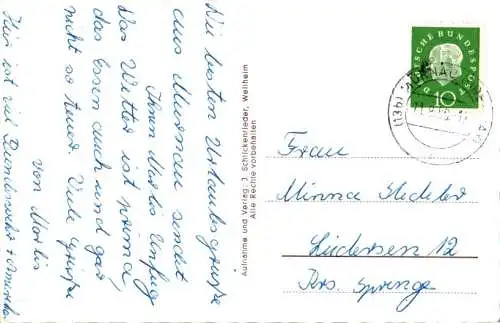 Die besten Urlaubsgrüße
aus Murnau sendet
Ihnen Marlis
Das Wetter ist prima
das Essen auch und gar
nicht so teuer. Viele Grüße
von Marlis
Hier ist viel Bundeswehr
Aufnahme und Verlag: J. Schlickenrieder, Weilheim
Alle Rechte vorbehalten
DEUTSCHE BUNDESPOST
10
(13b) MURNAU
Frau
Minna Stedeler
Lüdersen 12
Krs. Springe